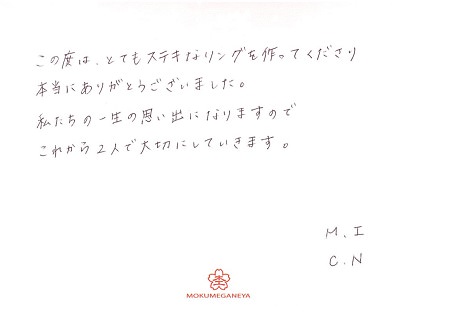 この度は、とてもステキなリングを作ってくださり
本当にありがとうございました。
私たちの一生の思い出になりますので
これから2人で大切にしていきます。
M.I
C.N
MOKUMEGANEYA